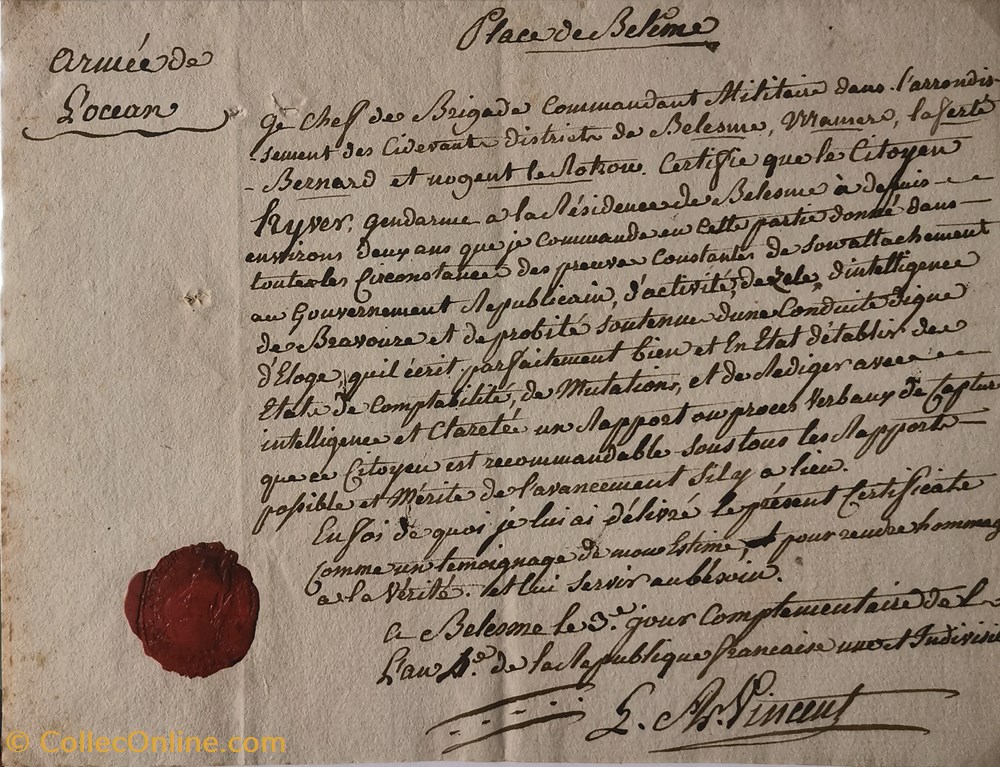 Place de Belême
Armée de
L'ocean
Je Chef de Brigade Commandant Militaire dans l'arrondis-
-sement des Cidevants districts de Belesme, Mamers, la ferté
-Bernard et nogent le Rotrou. Certifie que le Citoyen
hyver, gendarme a la Résidence de Belesme à depuis
environs deux ans que je commande en cette partie donné dans
toutes les Circonstances des preuves Constantes de son attachement
au Gouvernement Republicain, d'activité, de Zele, d'intelligence
de Bravoure et de probité soutenue d'une Conduite digne
d'Eloge, qu'il écrit parfaitement bien et En Etat d'établir des
Etats de Comptabilité, de Mutations, et de Rediger avec
intelligence et Clareté un Rapport ou procès Verbaux de Capture
que ce Citoyen est recommandable sous tous les Rapports
possible et Mérite de l'avancement s'il y a lieu.
En foi de quoi je lui ai délivré le présent Certificate
Comme un temoignage de mon Estime, et pour rendre hommag
a la Vérité. et lui servir au besoin.
a Belesme le 3.e jour Complementaire de L-
L'an 4.e de la Republique francaise une et Indivisi
L. Ar. Vincent
© CollecOnline.com